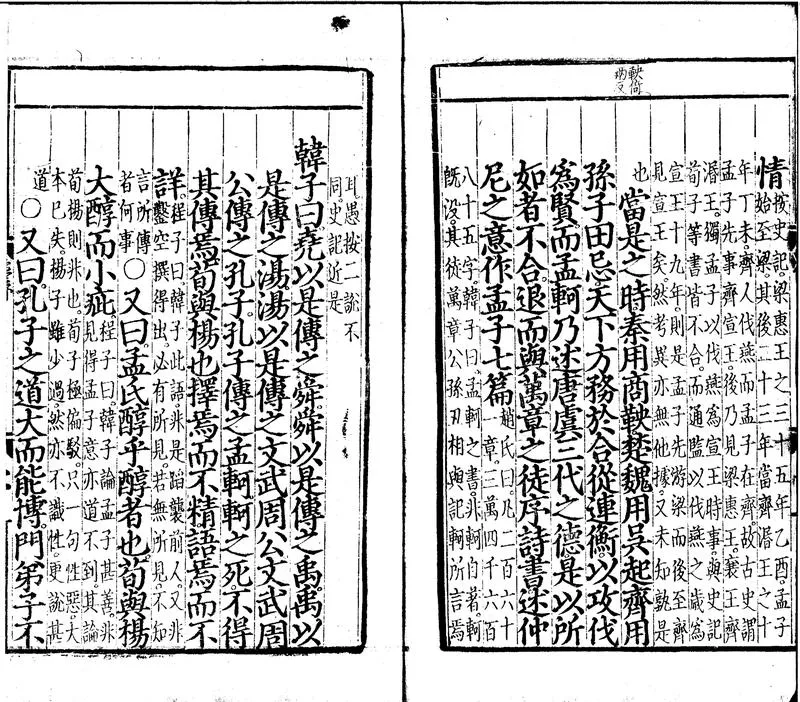 鞅倚
兩反
情按史記梁惠王之三十五年乙酉孟子
始至梁其後二十三年當齊湣王之十
年丁未齊人伐燕而孟子在齊故古史謂
孟子先事齊宣王後乃見梁惠王襄王齊
湣王獨孟子以伐燕為宣王時事與史記
荀子等書皆不合而通鑑以伐燕之歲為
宣王十九年則是孟子先游梁而後至齊
見宣王矣然考異亦無他據又未知孰是
也
當是之時秦用商鞅楚魏用吳起齊用
孫子田忌天下方務於合從連衡以攻伐
為賢而孟軻乃述唐虞三代之德是以所
如者不合退而與萬章之徒序詩書述仲
尼之意作孟子七篇趙氏曰凡二百六十
一章三萬四千六百
八十五字韓子曰孟軻之書非軻自著軻
旣没其徒萬章公孫丑相與記軻所言焉
耳愚按二說不
同史記近是
韓子曰堯以是傳之舜舜以是傳之禹禹以
是傳之湯湯以是傳之文武周公文武周
公傳之孔子孔子傳之孟軻軻之死不得
其傳焉荀與楊也擇焉而不精語焉而不
詳程子曰韓子此語非是蹈襲前人又非
鑿空撰得出必有所見若無所見不知
言所傳
者何事○又曰孟氏醇乎醇者也荀與楊
大醇而小疵程子曰韓子論孟子甚善非
見得孟子意亦道不到其論
荀楊則非也荀子極偏駁只一句性惡大
本已失楊子雖少過然亦不識性更說甚
道○又曰孔子之道大而能博門弟子不